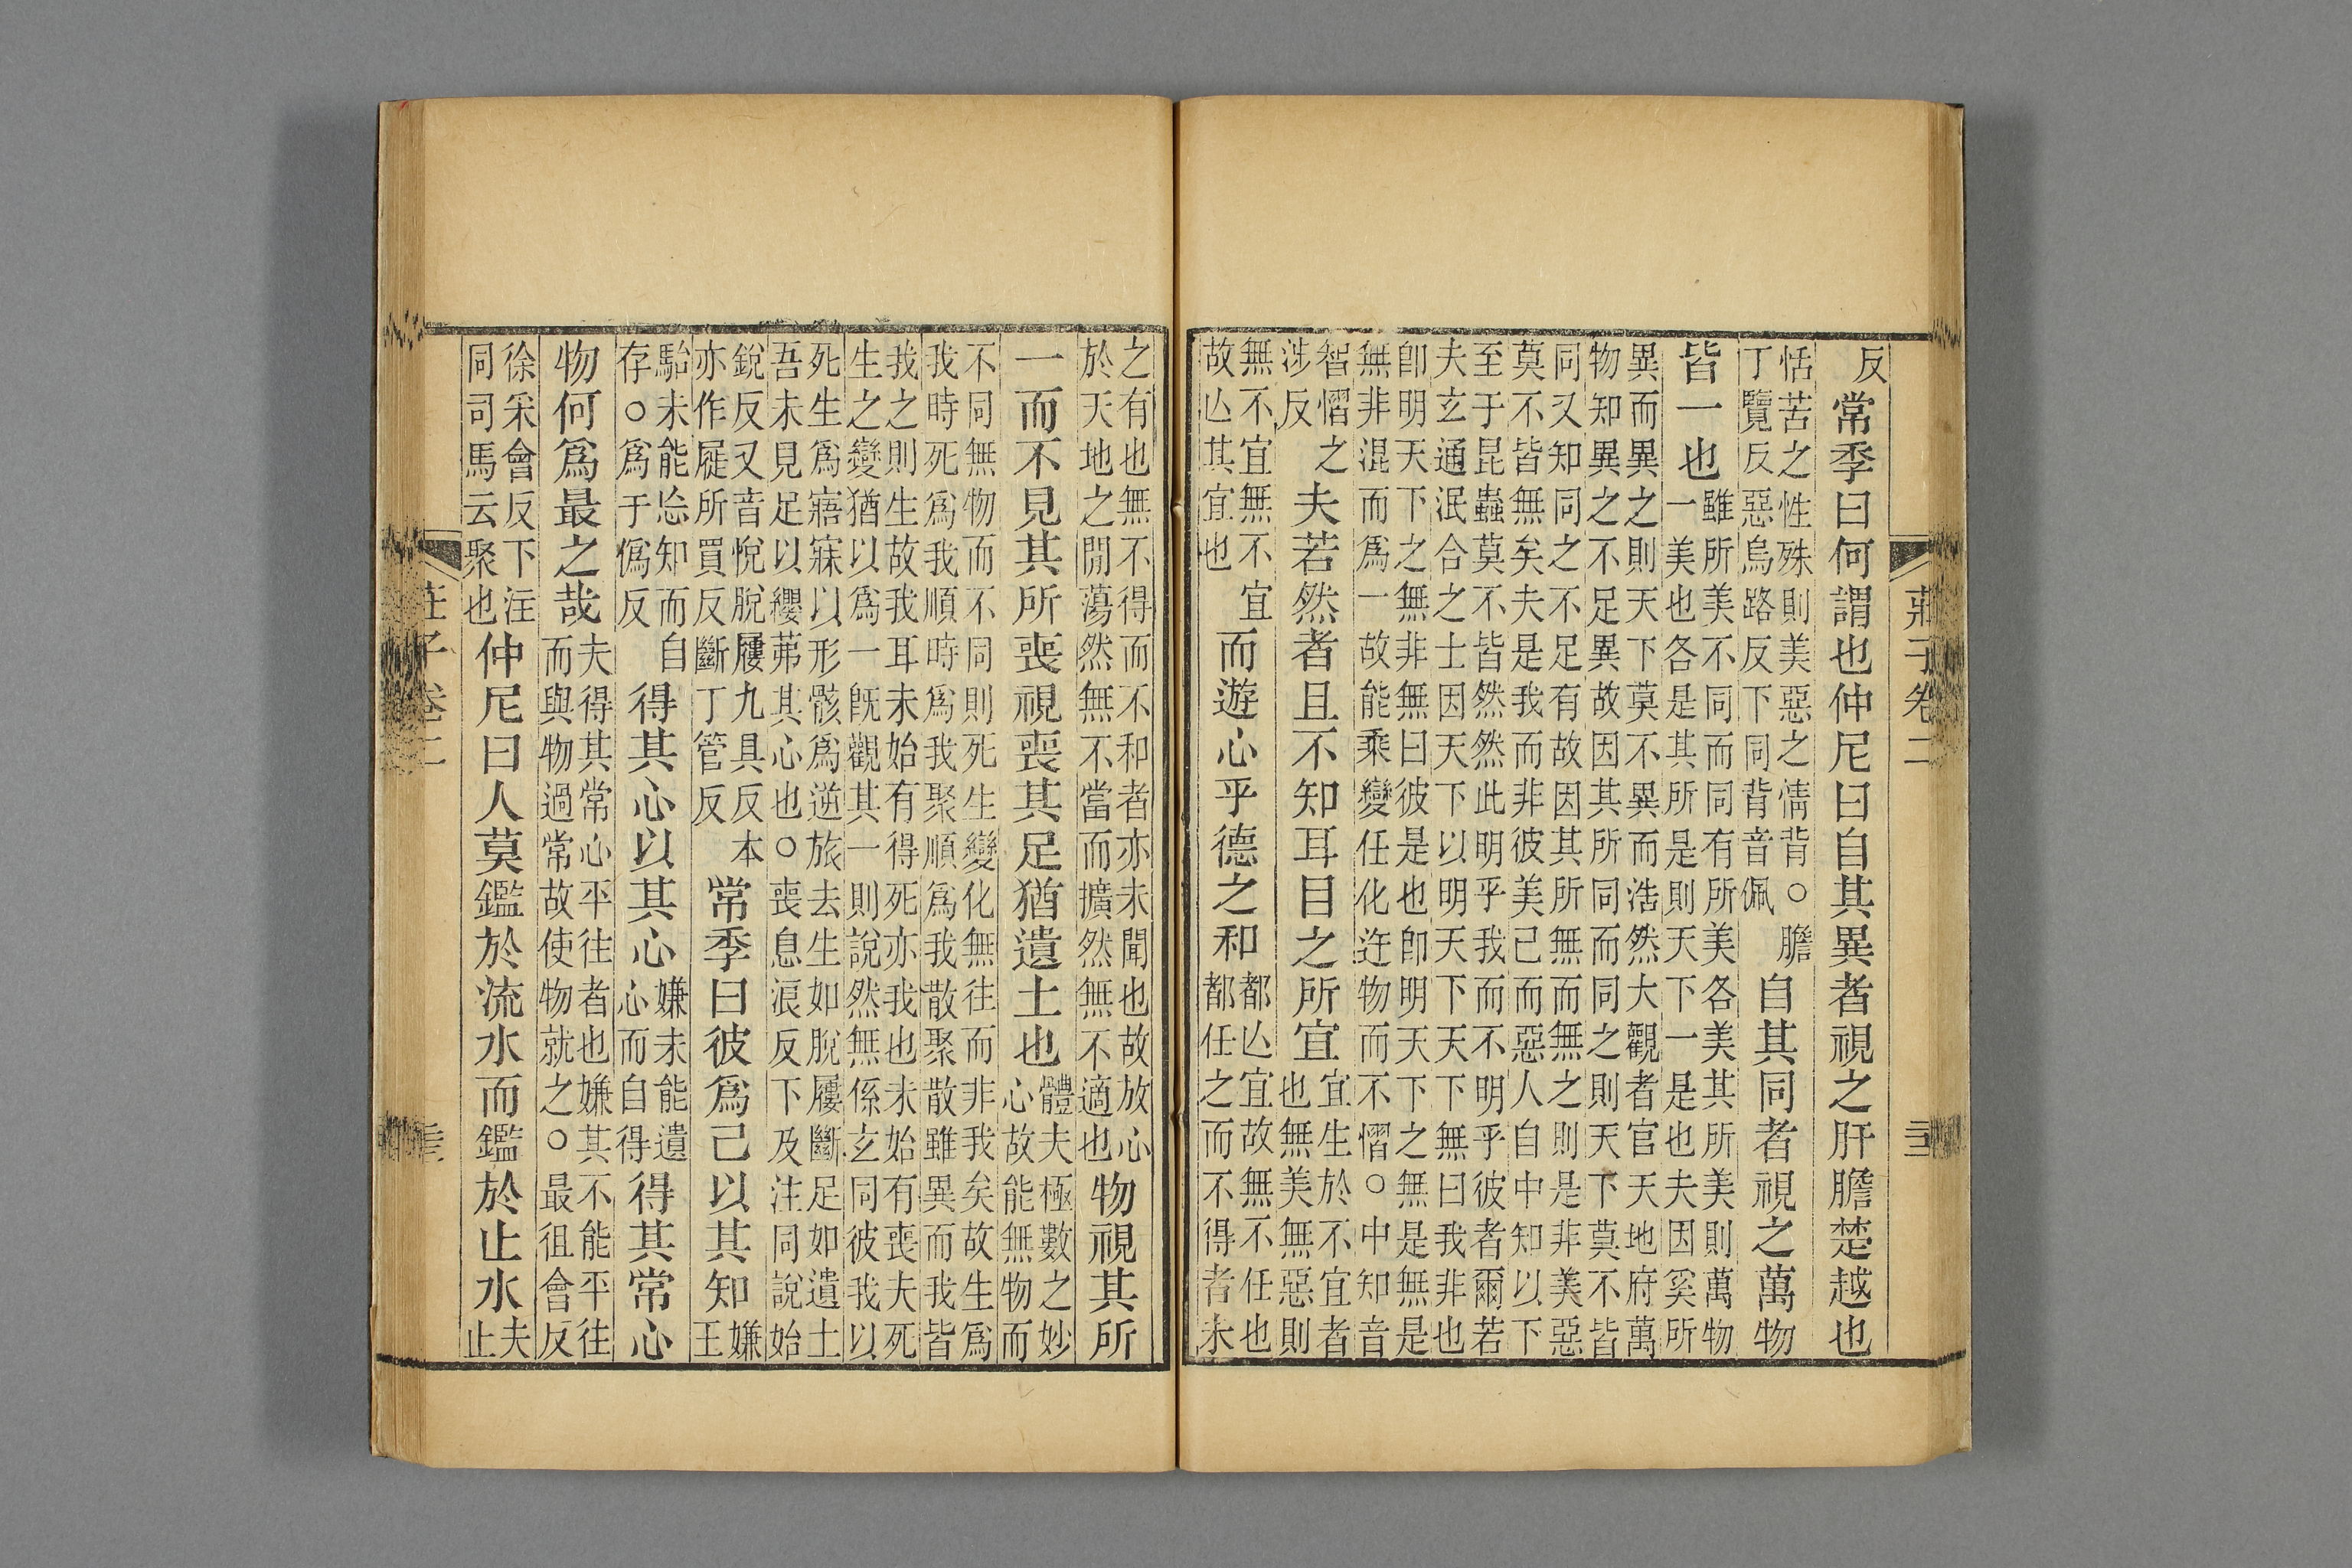 莊子卷二
反常季曰何謂也仲尼曰自其異者視之肝膽楚越也
恬苦之性殊則美惡之情背○膽
丁覽反惡烏路反下同背音佩
自其同者視之萬物
皆一也
雖所美不同而同有所美各美其所美則萬物
一美也各是其所是則天下一是也夫因奚所
異而異之則天下莫不異而浩然大觀者官天地府萬
物知異之不足異故因其所同而同之則天下莫不皆
同又知同之不足有故因其所無而無之則是非美惡
莫不皆無矣夫是我而非彼美己而惡人自中知以下
至于昆蟲莫不皆然然此明乎我而不明乎彼者爾若
夫玄通泯合之士因天下以明天下天下無曰我非也
卽明天下之無非無曰彼是也卽明天下之無是無是
無非混而爲一故能乘變任化迕物而不慴○中知音
智慴之
涉反
夫若然者且不知耳目之所宜
宜生於不宜者
也無美無惡則
無不宜無不宜
故亾其宜也
而遊心乎德之和
都亾宜故無不任也
都任之而不得者未
之有也無不得而不和者亦未聞也故放心
於天地之閒蕩然無不當而擴然無不適也
物視其所
一而不見其所喪視喪其足猶遺土也
體夫極數之妙
心故能無物而
不同無物而不同則死生變化無往而非我矣故生爲
我時死爲我順時爲我聚順爲我散聚散雖異而我皆
我之則生故我耳未始有得死亦我也未始有喪夫死
生之變猶以爲一旣觀其一則說然無係玄同彼我以
死生爲寤寐以形骸爲逆旅去生如脫屨斷足如遺土
吾未見足以纓茀其心也○喪息浪反下及注同說始
銳反又音悅脫屨九具反本
亦作屣所買反斷丁管反
常季曰彼爲己以其知
嫌
王
駘未能忘知而自
存○爲于僞反
得其心以其心
嫌未能遺
心而自得
得其常心
物何爲最之哉
夫得其常心平往者也嫌其不能平往
而與物過常故使物就之○最徂會反
徐采會反下注
同司馬云聚也
仲尼曰人莫鑑於流水而鑑於止水
夫
止
莊子卷二